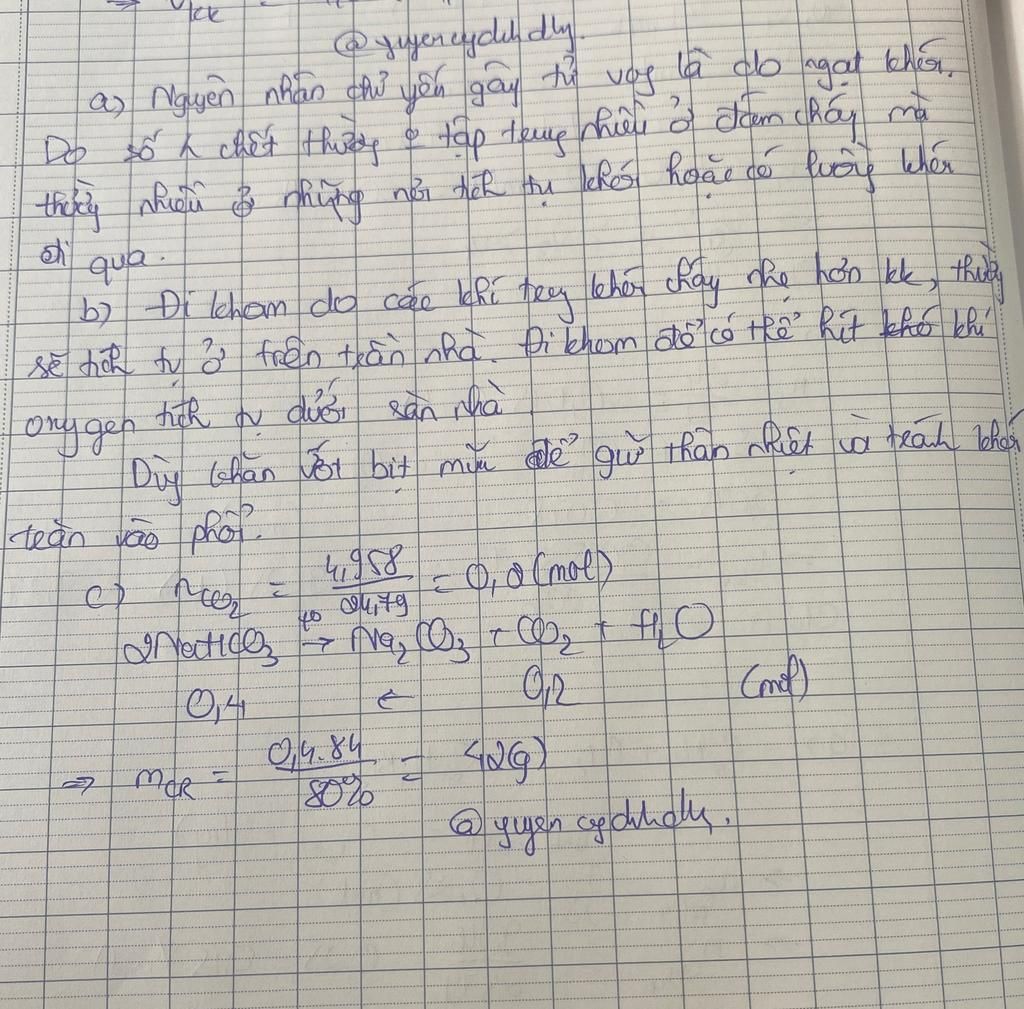 Vkk
@ yuyencyduhdly.
a) Nguyên nhân chủ yếu gây tử vog là do ngạt khói.
Do số n chết thườg o tập trung nhiều ở đám cháy mà
thườg nhiều ở nhữg nơi tích tụ khói hoặc có luồng khói
đi qua.
b) Đi khom do các khí trog khói cháy nhẹ hơn kk, thườg
sẽ tích tụ ở trên trần nhà. Đi khom để có thể hít khí
oxygen tích tụ dưới sàn nhà
Dùg khăn ướt bịt mũi để giữ thân nhiệt và tránh khói
tràn vào phổi.
c) nCO2 = 4,958 / 24,79 = 0,2 (mol)
2NaHCO3 to → Na2CO3 + CO2 + H2O
0,4 ← 0,2 (mol)
⇒ mCR = 0,4.84 / 80% = 42(g)
@ yuyen cyduhdly.